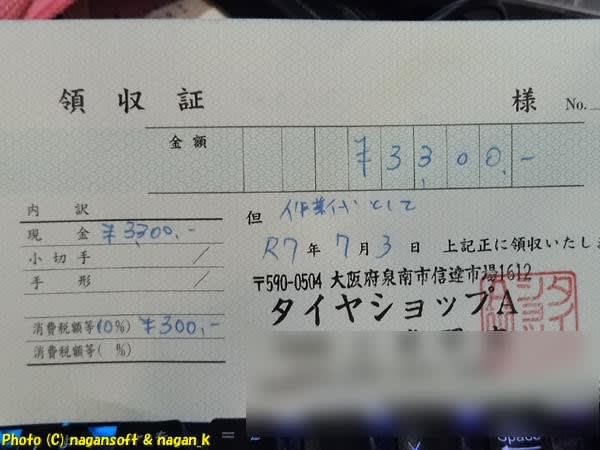 領収証 様 No.
金額 ¥3,300.-
内訳
現金 ¥3,300.-
小切手
手形
消費税額等(10%) ¥300.-
消費税額等( %)
但 作業代として
R7年7月3日 上記正に領収いたしま
〒590-0504 大阪府泉南市信達市場1612
タイヤショップA
Photo (C) nagansoft & nagan_k